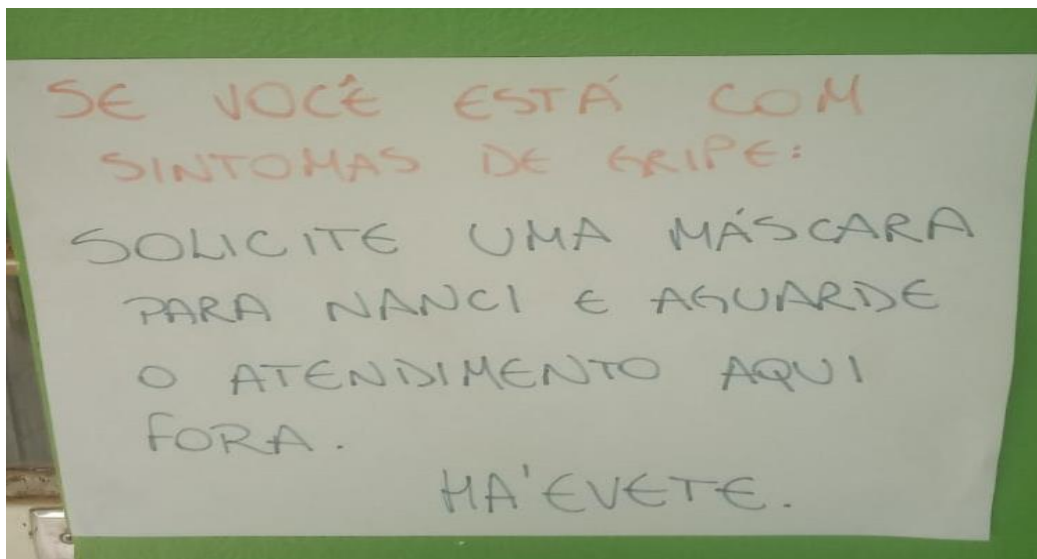 SE VOCÊ ESTÁ COM
SINTOMAS DE GRIPE:
SOLICITE UMA MÁSCARA
PARA NANCI E AGUARDE
O ATENDIMENTO AQUI
FORA.
HA'EVETE.